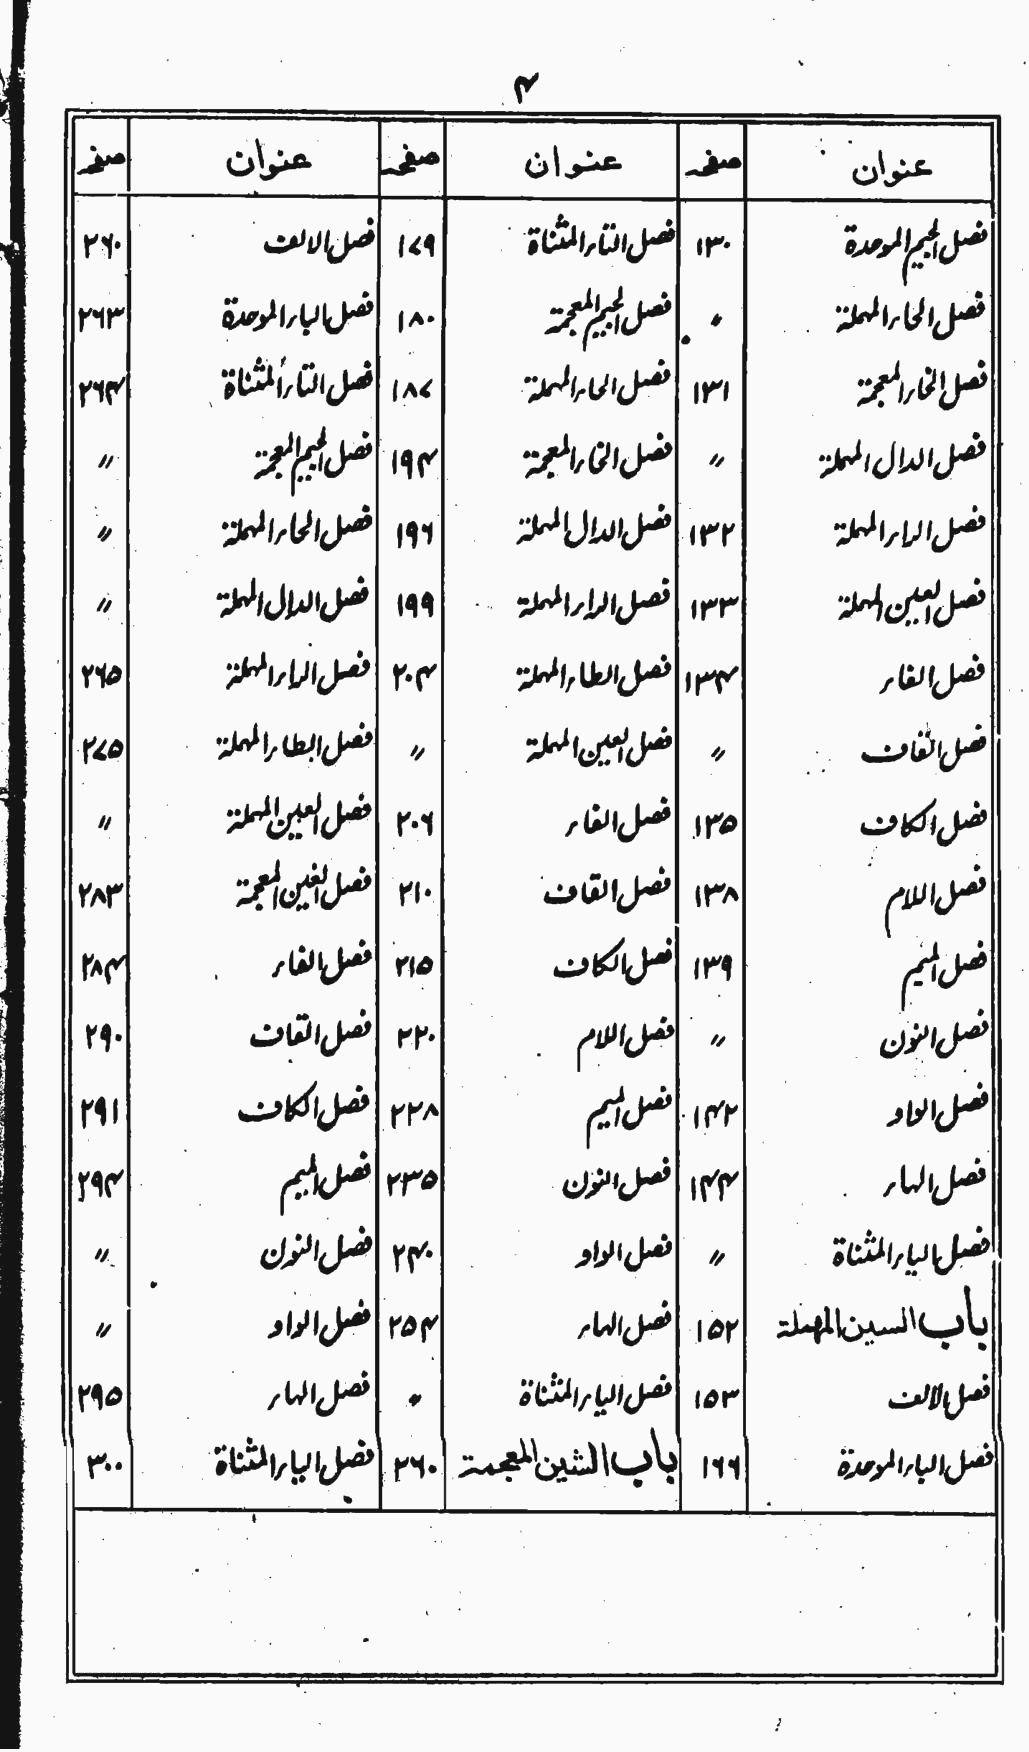 ۴
عنوان صفحہ عنوان صفحہ عنوان صفحہ
فصل الجیم الموحدة ۱۳۰ فصل التاء المثناة ۱۷۹ فصل الالف ۲۶۰
فصل الحاء المہملة 〃 فصل الجیم المعجمة ۱۸۰ فصل الباء الموحدة ۲۶۳
فصل الخاء المعجمة ۱۳۱ فصل الحاء المہملة ۱۸۷ فصل التاء المثناة ۲۶۴
فصل الدال المہملة 〃 فصل الخاء المعجمة ۱۹۴ فصل الجیم المعجمة 〃
فصل الراء المہملة ۱۳۲ فصل الدال المہملة ۱۹۶ فصل الحاء المہملة 〃
فصل العین المہملة ۱۳۳ فصل الراء المہملة ۱۹۹ فصل الدال المہملة 〃
فصل الفاء ۱۳۴ فصل الطاء المہملة ۲۰۴ فصل الراء المہملة ۲۶۵
فصل القاف 〃 فصل العین المہملة 〃 فصل الطاء المہملة ۲۷۵
فصل الکاف ۱۳۵ فصل الفاء ۲۰۶ فصل العین المہملة 〃
فصل اللام ۱۳۸ فصل القاف ۲۱۰ فصل الغین المعجمة ۲۸۳
فصل المیم ۱۳۹ فصل الکاف ۲۱۵ فصل الفاء ۲۸۴
فصل النون 〃 فصل اللام ۲۲۰ فصل القاف ۲۹۰
فصل الواو ۱۴۲ فصل المیم ۲۲۸ فصل الکاف ۲۹۱
فصل الہاء ۱۴۴ فصل النون ۲۳۵ فصل المیم ۲۹۴
فصل الیاء المثناة 〃 فصل الواو ۲۴۰ فصل النون 〃
باب السین المہملة ۱۵۲ فصل الہاء ۲۵۴ فصل الواو 〃
فصل الالف ۱۵۳ فصل الیاء المثناة 〃 فصل الہاء ۲۹۵
فصل الباء الموحدة ۱۶۶ باب الشین المعجمة ۲۶۰ فصل الیاء المثناة ۳۰۰